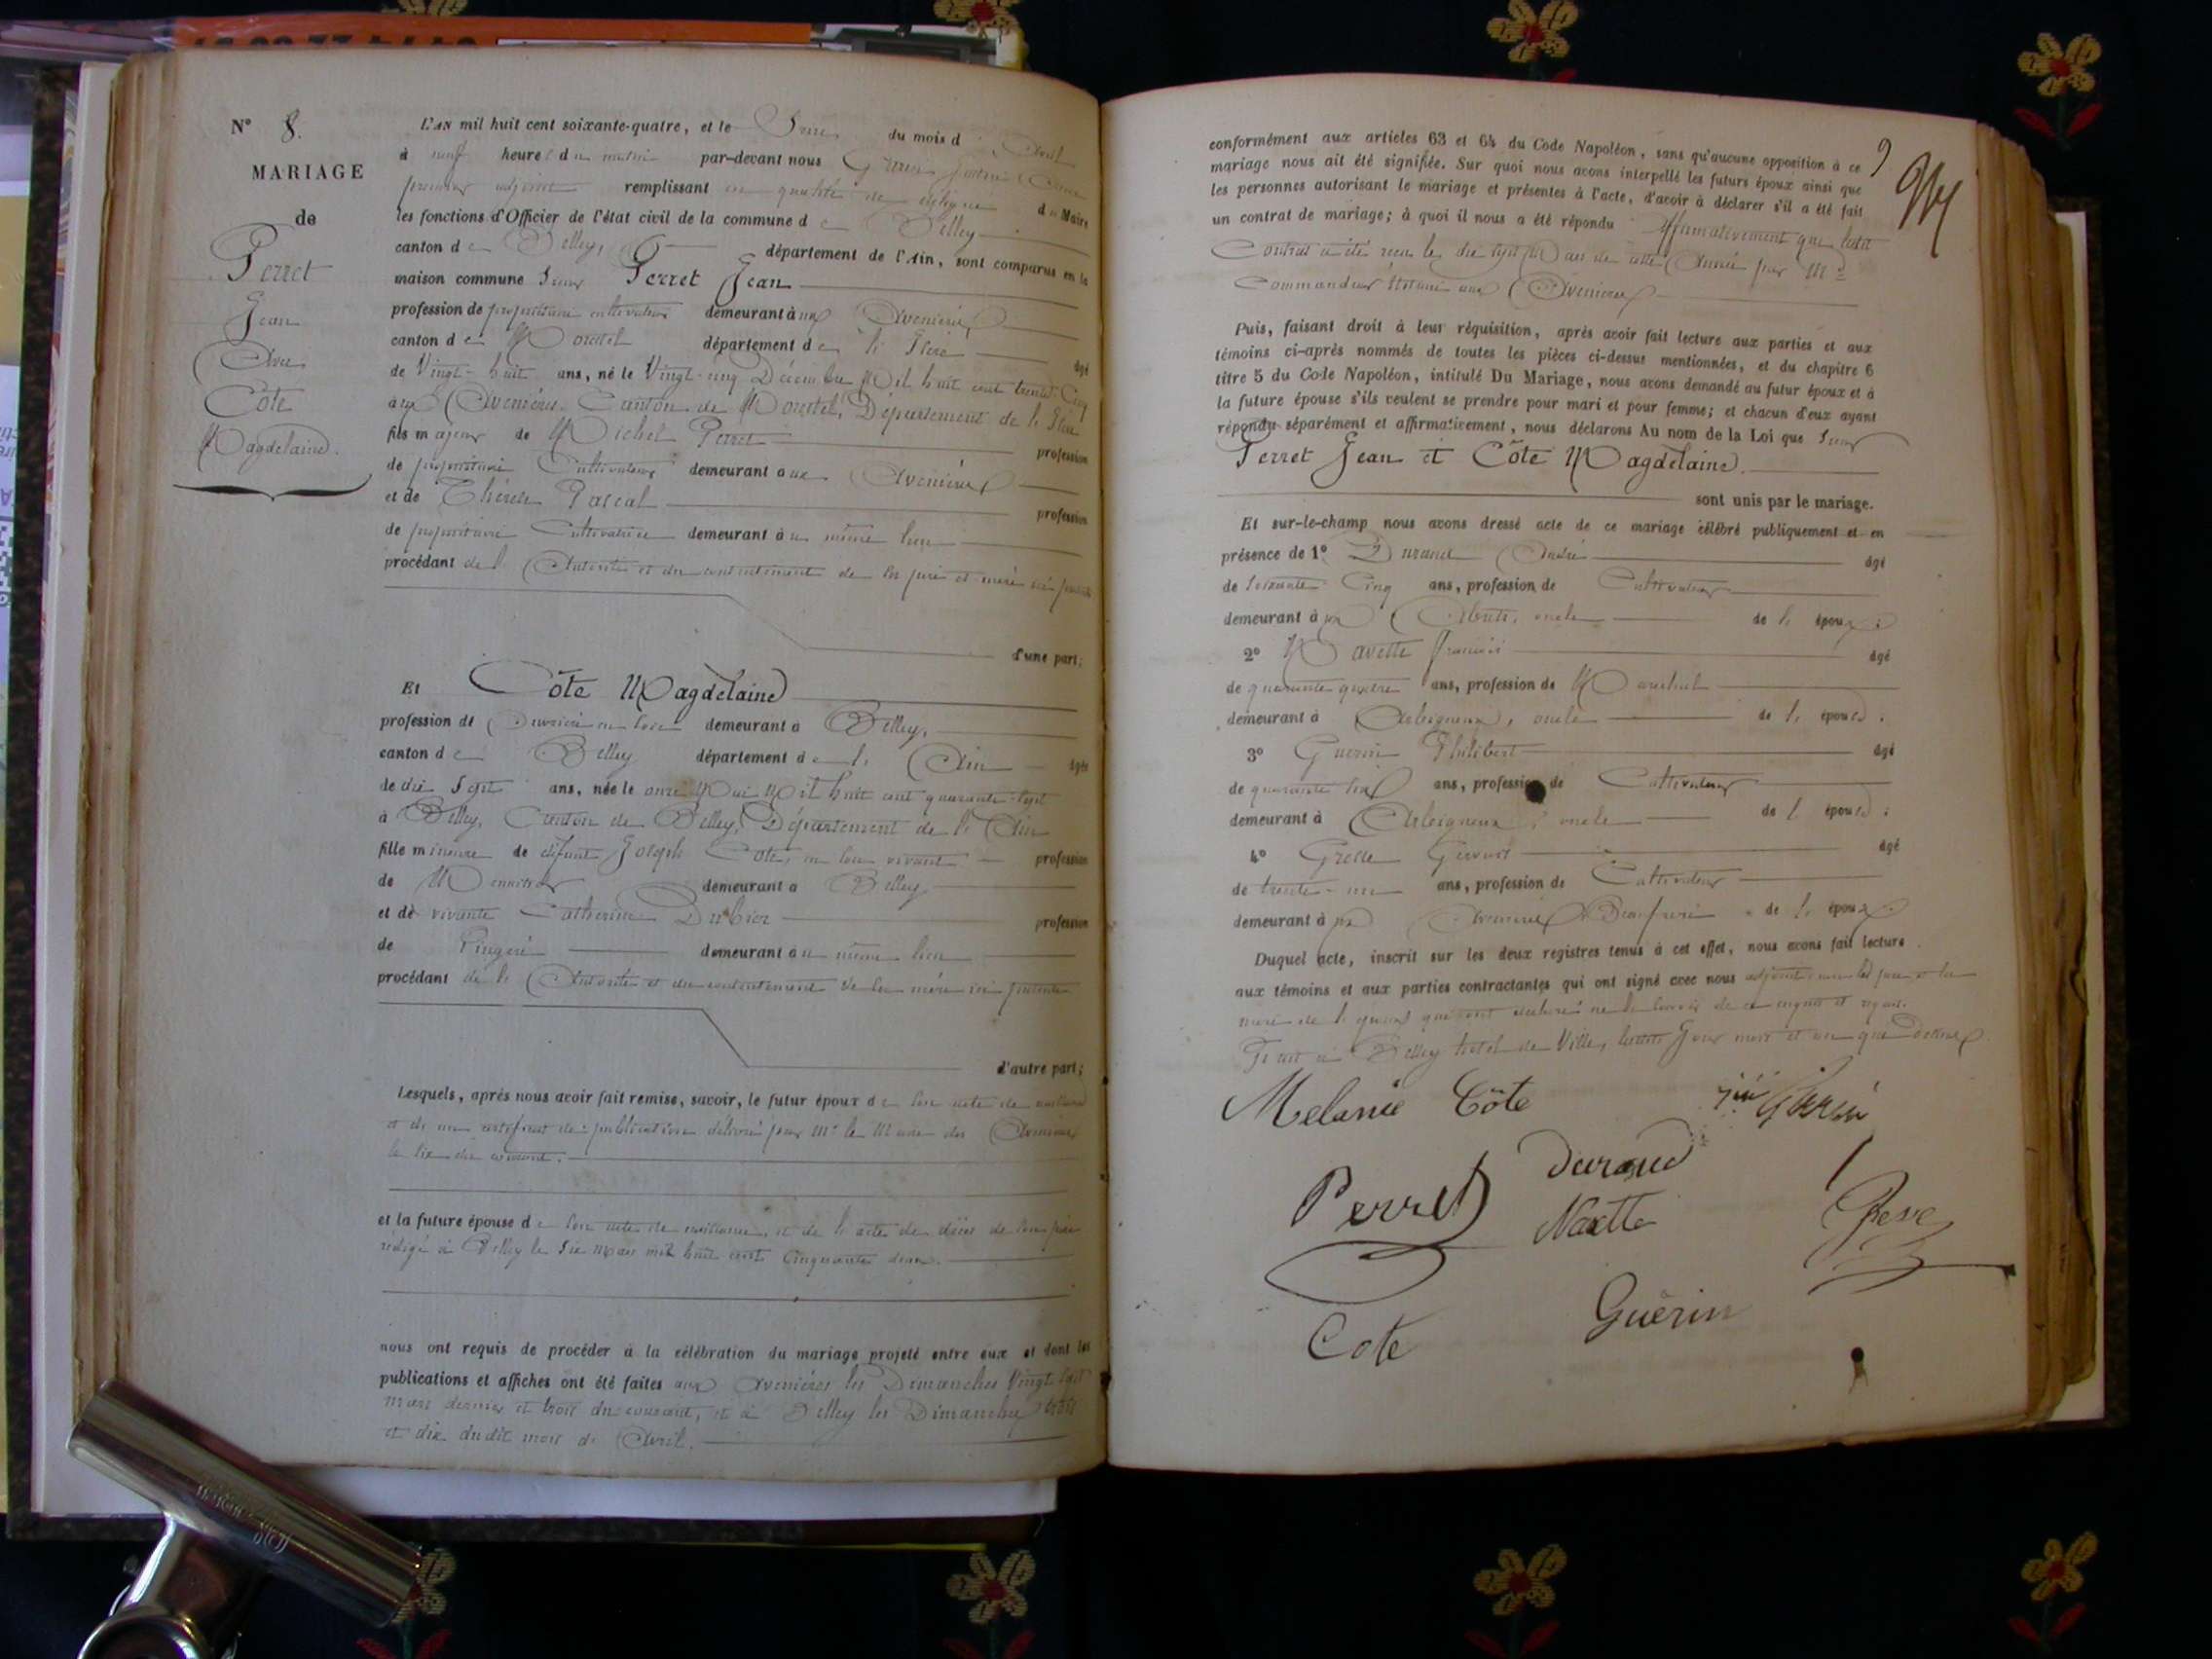 N° 8.
MARIAGE
de
Perret
Jean
Avec
Côte
Magdelaine.
L'AN mil huit cent soixante-quatre, et le Seize du mois d'Avril
à neuf heures du matin par-devant nous
premier adjoint remplissant en qualité de délégué du Maire
les fonctions d'Officier de l'état civil de la commune de Belley
canton de Belley, département de l'Ain, sont comparus en la
maison commune Sieur Perret Jean
profession de propriétaire cultivateur demeurant aux Avenières
canton de Morestel département de l'Isère âgé
de Vingt-huit ans, né le Vingt-cinq Décembre Mil huit cent trente-Cinq
aux Avenières Canton de Morestel, Département de l'Isère
fils majeur de Michel Perret profession
de propriétaire Cultivateur demeurant aux Avenières
et de Thérèse Pascal profession
de propriétaire Cultivatrice demeurant au même lieu
procédant de l'Autorité et du consentement de ses père et mère ici présents
d'une part;
Et Côte Magdelaine
profession de Ouvrière en soie demeurant à Belley,
canton de Belley département de l'Ain âgée
de dix Sept ans, née le onze Mai Mil huit cent quarante-sept
à Belley, Canton de Belley, Département de l'Ain
fille mineure de défunt Joseph Côte, en son vivant profession
de demeurant à Belley
et de vivante Catherine Dubier profession
de Lingère demeurant au même lieu
procédant de l'Autorité et du consentement de sa mère ici présente
d'autre part;
Lesquels, après nous avoir fait remise, savoir, le futur époux de son acte de naissance
et de un certificat de publication délivré par Mr le Maire des Avenières
le dix du courant.
et la future épouse de son acte de naissance, et de l'acte de décès de son père
rédigé à Belley le Six Mars mil huit cent Cinquante deux.
nous ont requis de procéder à la célébration du mariage projeté entre eux et dont les
publications et affiches ont été faites aux Avenières les Dimanches Vingt-sept
mars dernier et trois du courant, et à Belley les Dimanches trois
et dix dudit mois d'Avril.
conformément aux articles 63 et 64 du Code Napoléon, sans qu'aucune opposition à ce
mariage nous ait été signifiée. Sur quoi nous avons interpellé les futurs époux ainsi que
les personnes autorisant le mariage et présentes à l'acte, d'avoir à déclarer s'il a été fait
un contrat de mariage; à quoi il nous a été répondu Affirmativement que ledit
Contrat a été reçu le dix sept Mars de cette Année par Me
Commandeur Notaire aux Avenières
Puis, faisant droit à leur réquisition, après avoir fait lecture aux parties et aux
témoins ci-après nommés de toutes les pièces ci-dessus mentionnées, et du chapitre 6
titre 5 du Code Napoléon, intitulé Du Mariage, nous avons demandé au futur époux et à
la future épouse s'ils veulent se prendre pour mari et pour femme; et chacun d'eux ayant
répondu séparément et affirmativement, nous déclarons Au nom de la Loi que Sieur
Perret Jean et Côte Magdelaine.
sont unis par le mariage.
Et sur-le-champ nous avons dressé acte de ce mariage célébré publiquement et en
présence de 1° Durand André âgé
de Soixante Cinq ans, profession de Cultivateur
demeurant à oncle de l'époux;
2° François âgé
de quarante quatre ans, profession de Maréchal
demeurant à Arbignieu, oncle de l'épouse.
3° Guérin Philibert âgé
de quarante six ans, profession de Cultivateur
demeurant à Arbignieu, oncle de l'épouse;
4° âgé
de trente-un ans, profession de Cultivateur
demeurant aux Avenières Beaufrère de l'époux
Duquel acte, inscrit sur les deux registres tenus à cet effet, nous avons fait lecture
aux témoins et aux parties contractantes qui ont signé avec nous adjoint
mère de l'époux qui ont déclaré ne le savoir de ce enquis et requis.
Fait à Belley hotel de Ville, lesdits Jour mois et an que dessus
Melanie Côte
Perret
Durand
Guérin
Cote